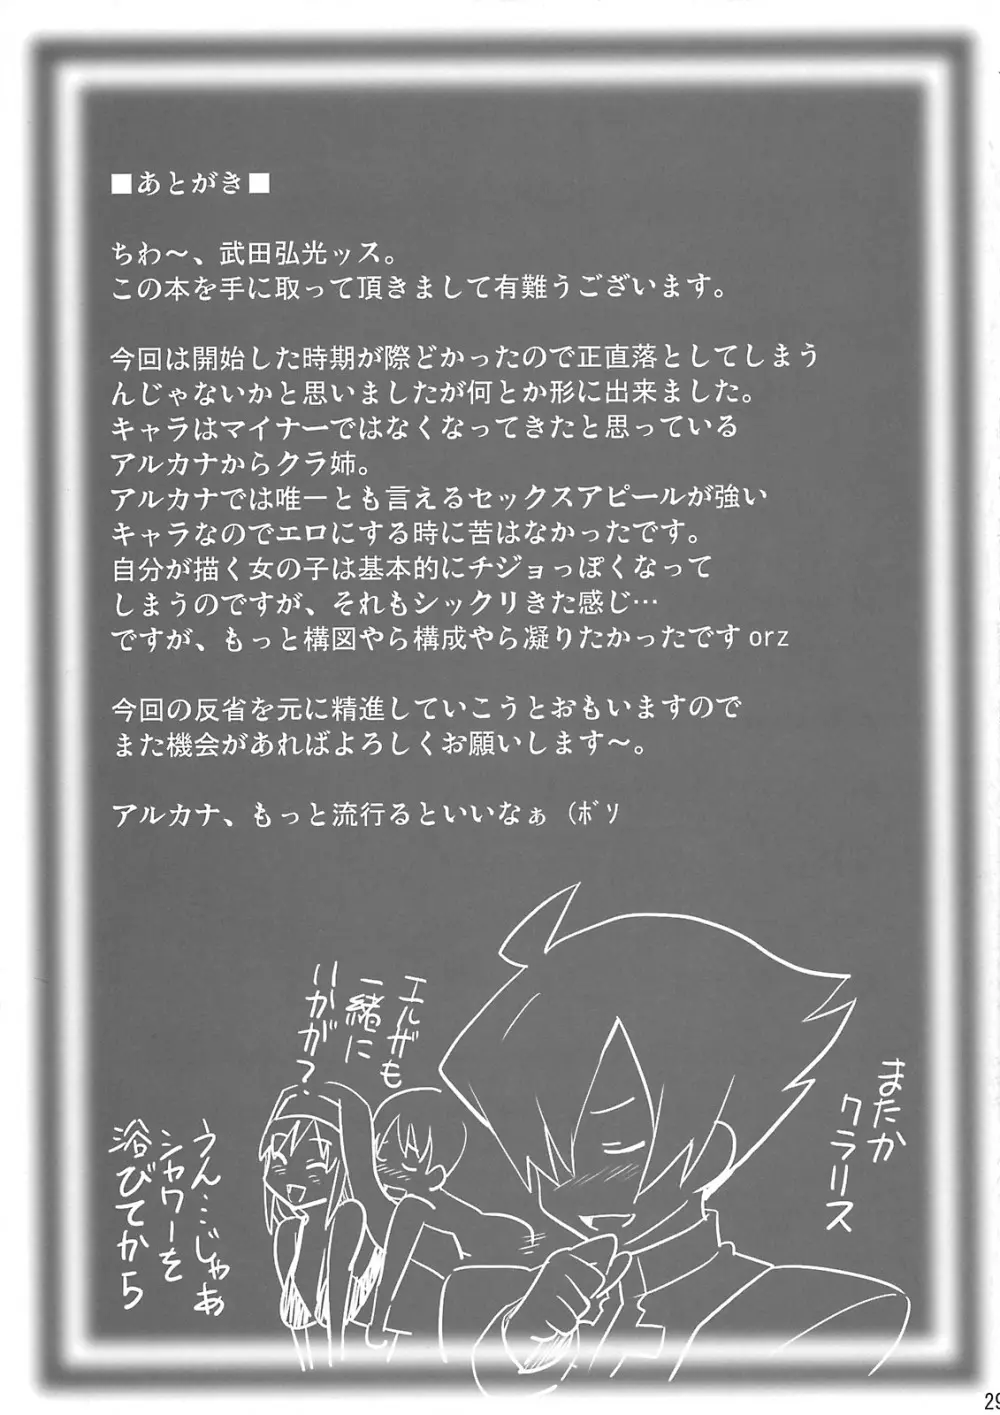 ■あとがき■
ちわ～、武田弘光ッス。
この本を手に取って頂きまして有難うございます。
今回は開始した時期が際どかったので正直落としてしまう
んじゃないかと思いましたが何とか形に出来ました。
キャラはマイナーではなくなってきたと思っている
アルカナからクラ姉。
アルカナでは唯一とも言えるセックスアピールが強い
キャラなのでエロにする時に苦はなかったです。
自分が描く女の子は基本的にチジョっぽくなって
しまうのですが、それもシックリきた感じ…
ですが、もっと構図やら構成やら凝りたかったですorz
今回の反省を元に精進していこうとおもいますので
また機会があればよろしくお願いします～。
アルカナ、もっと流行るといいなぁ（ﾎﾞｿ
またか
クラリス
エルザも
一緒に
いかが？
うん…じゃあ
シャワーを
浴びてから
29